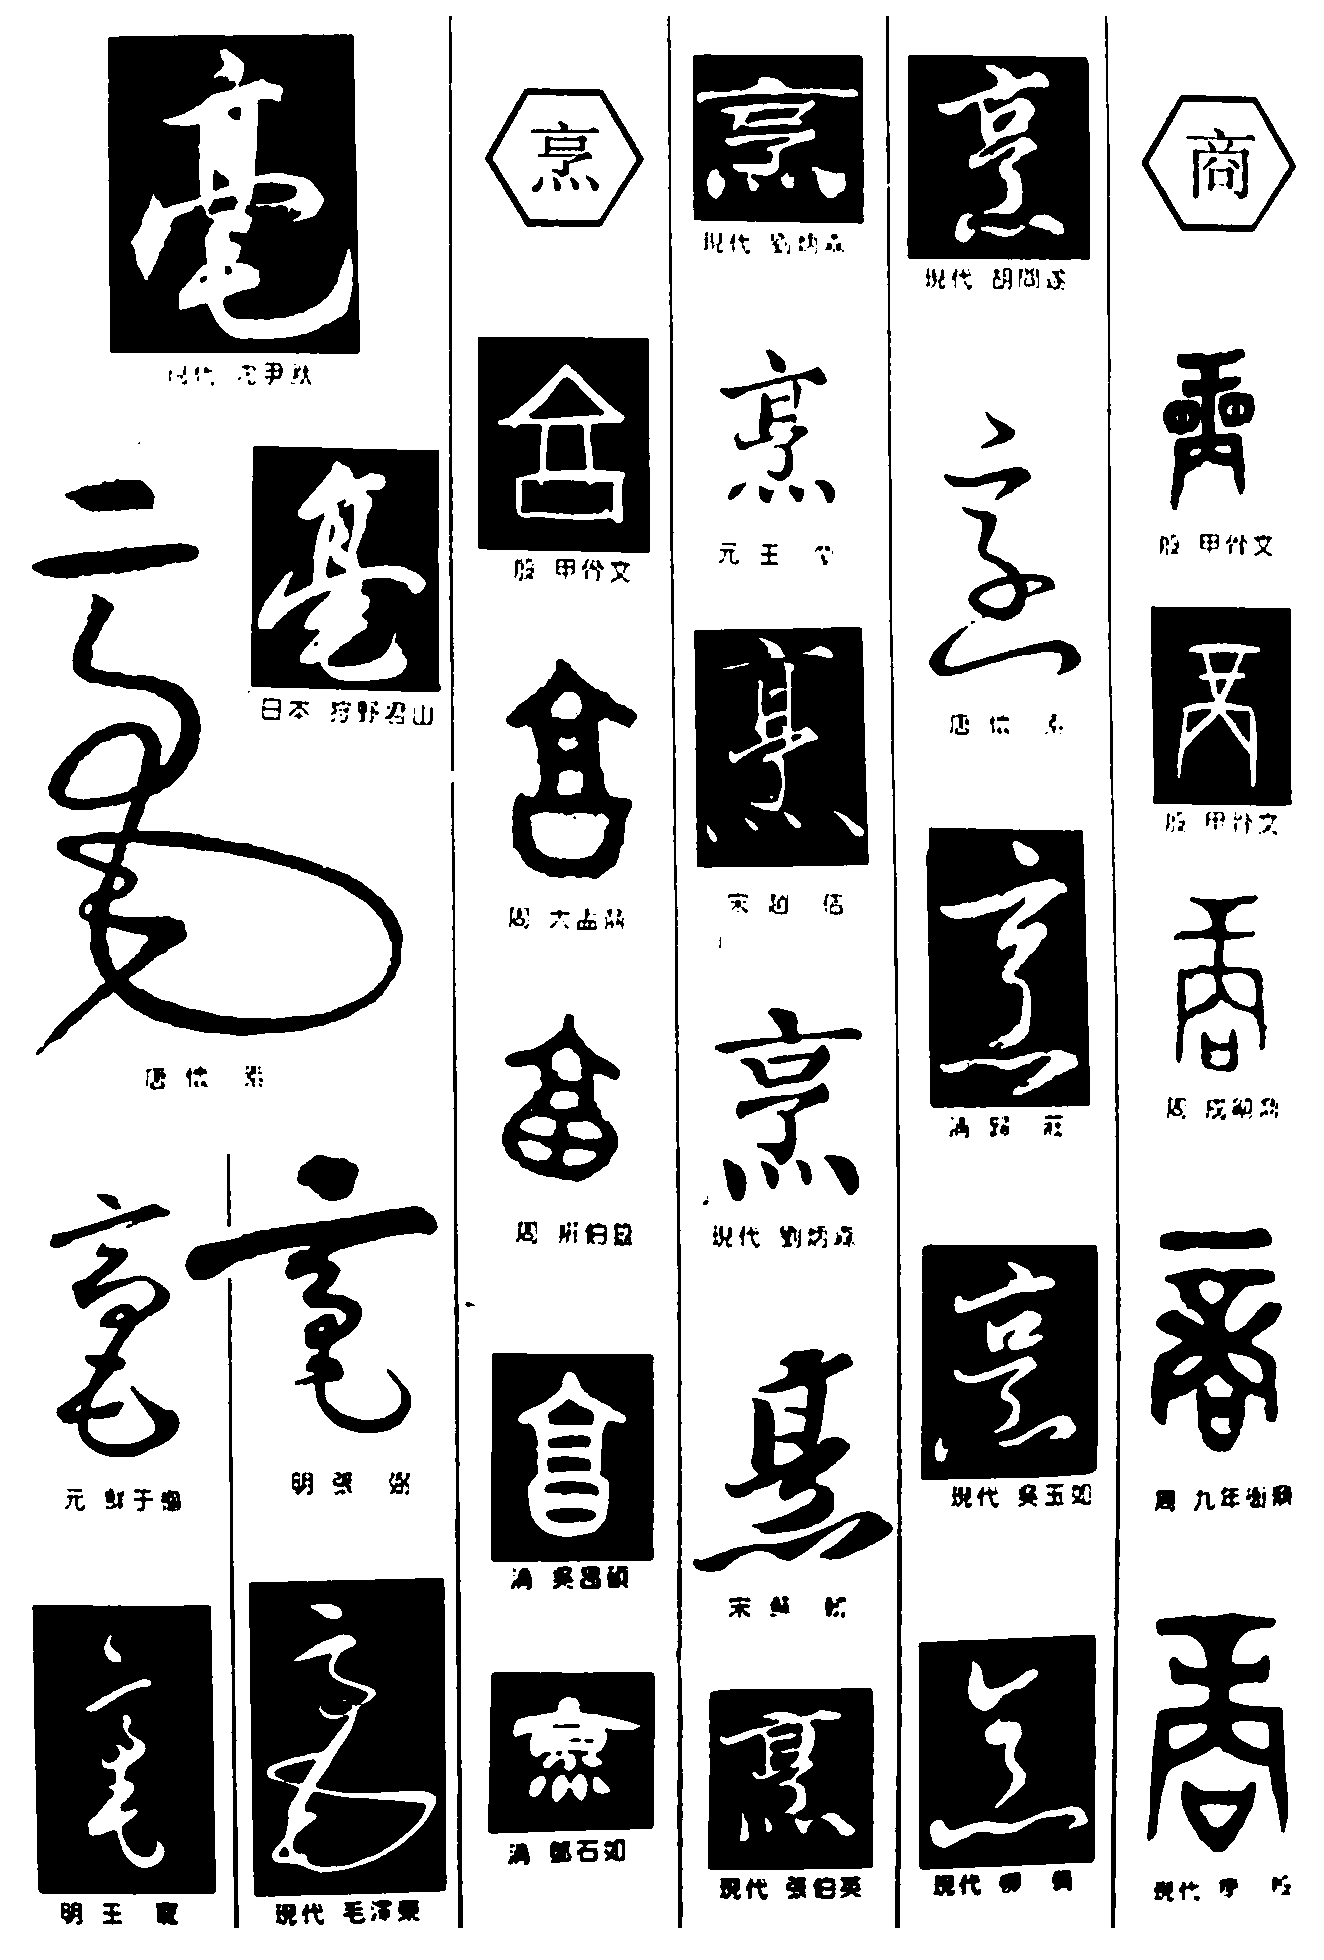 毫
現代 沈尹默
毫
日本 狩野君山
毫
唐 懷 素
毫
元 鮮于樞
毫
明 張 弼
毫
明 王 寵
毫
現代 毛澤東
烹
殷 甲骨文
周 大盂鼎
周
清 吳昌碩
烹
清 鄧石如
烹
現代 劉炳森
烹
元 王
烹
宋 趙 佶
烹
現代 劉炳森
烹
宋
烹
現代 張伯英
烹
現代 胡問遂
烹
唐 懷 素
烹
清
烹
現代 吳玉如
烹
現代
商
商
殷 甲骨文
商
殷 甲骨文
商
周
商
周 九年衛鼎
商
現代